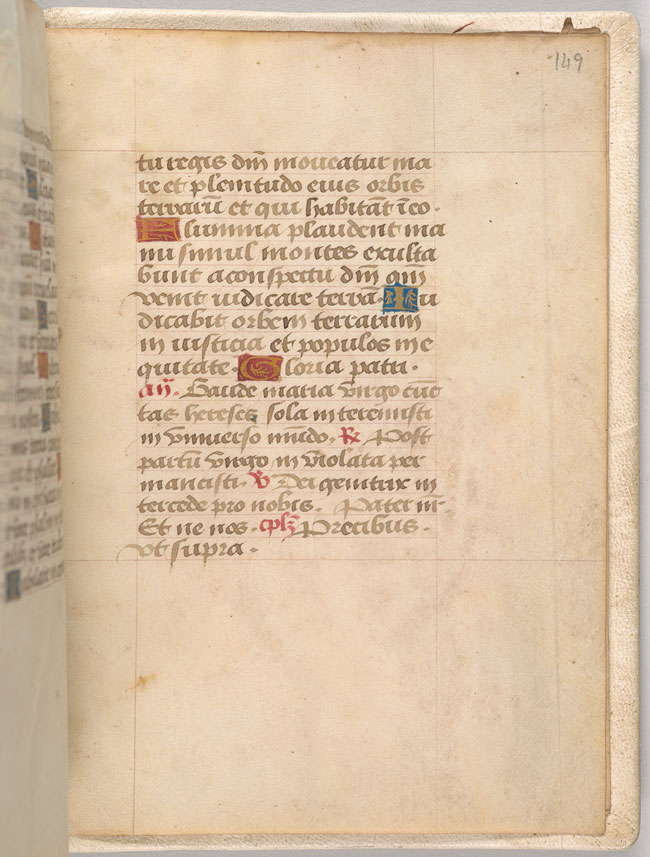 149
tu regis dn̄i moueatur ma
re et plenitudo eius orbis
terrarū et qui habitāt ī eo.
Flumina plaudent ma
nu simul montes exulta
bunt a conspectu dn̄i qm̄
venit iudicare terrā. Iu
dicabit orbem terrarum
in iusticia et populos in e
quitate. Gloria patri.
an̄. Gaude maria v̄irgo cūc
tas hereses sola interemisti
in vniuerso mūdo. ℟ Post
partū virgo in violata per
mancisti. ℣ Dei genitrix in
tercede pro nobis. Pater nr̄.
Et ne nos. Precibus.
vt supra.